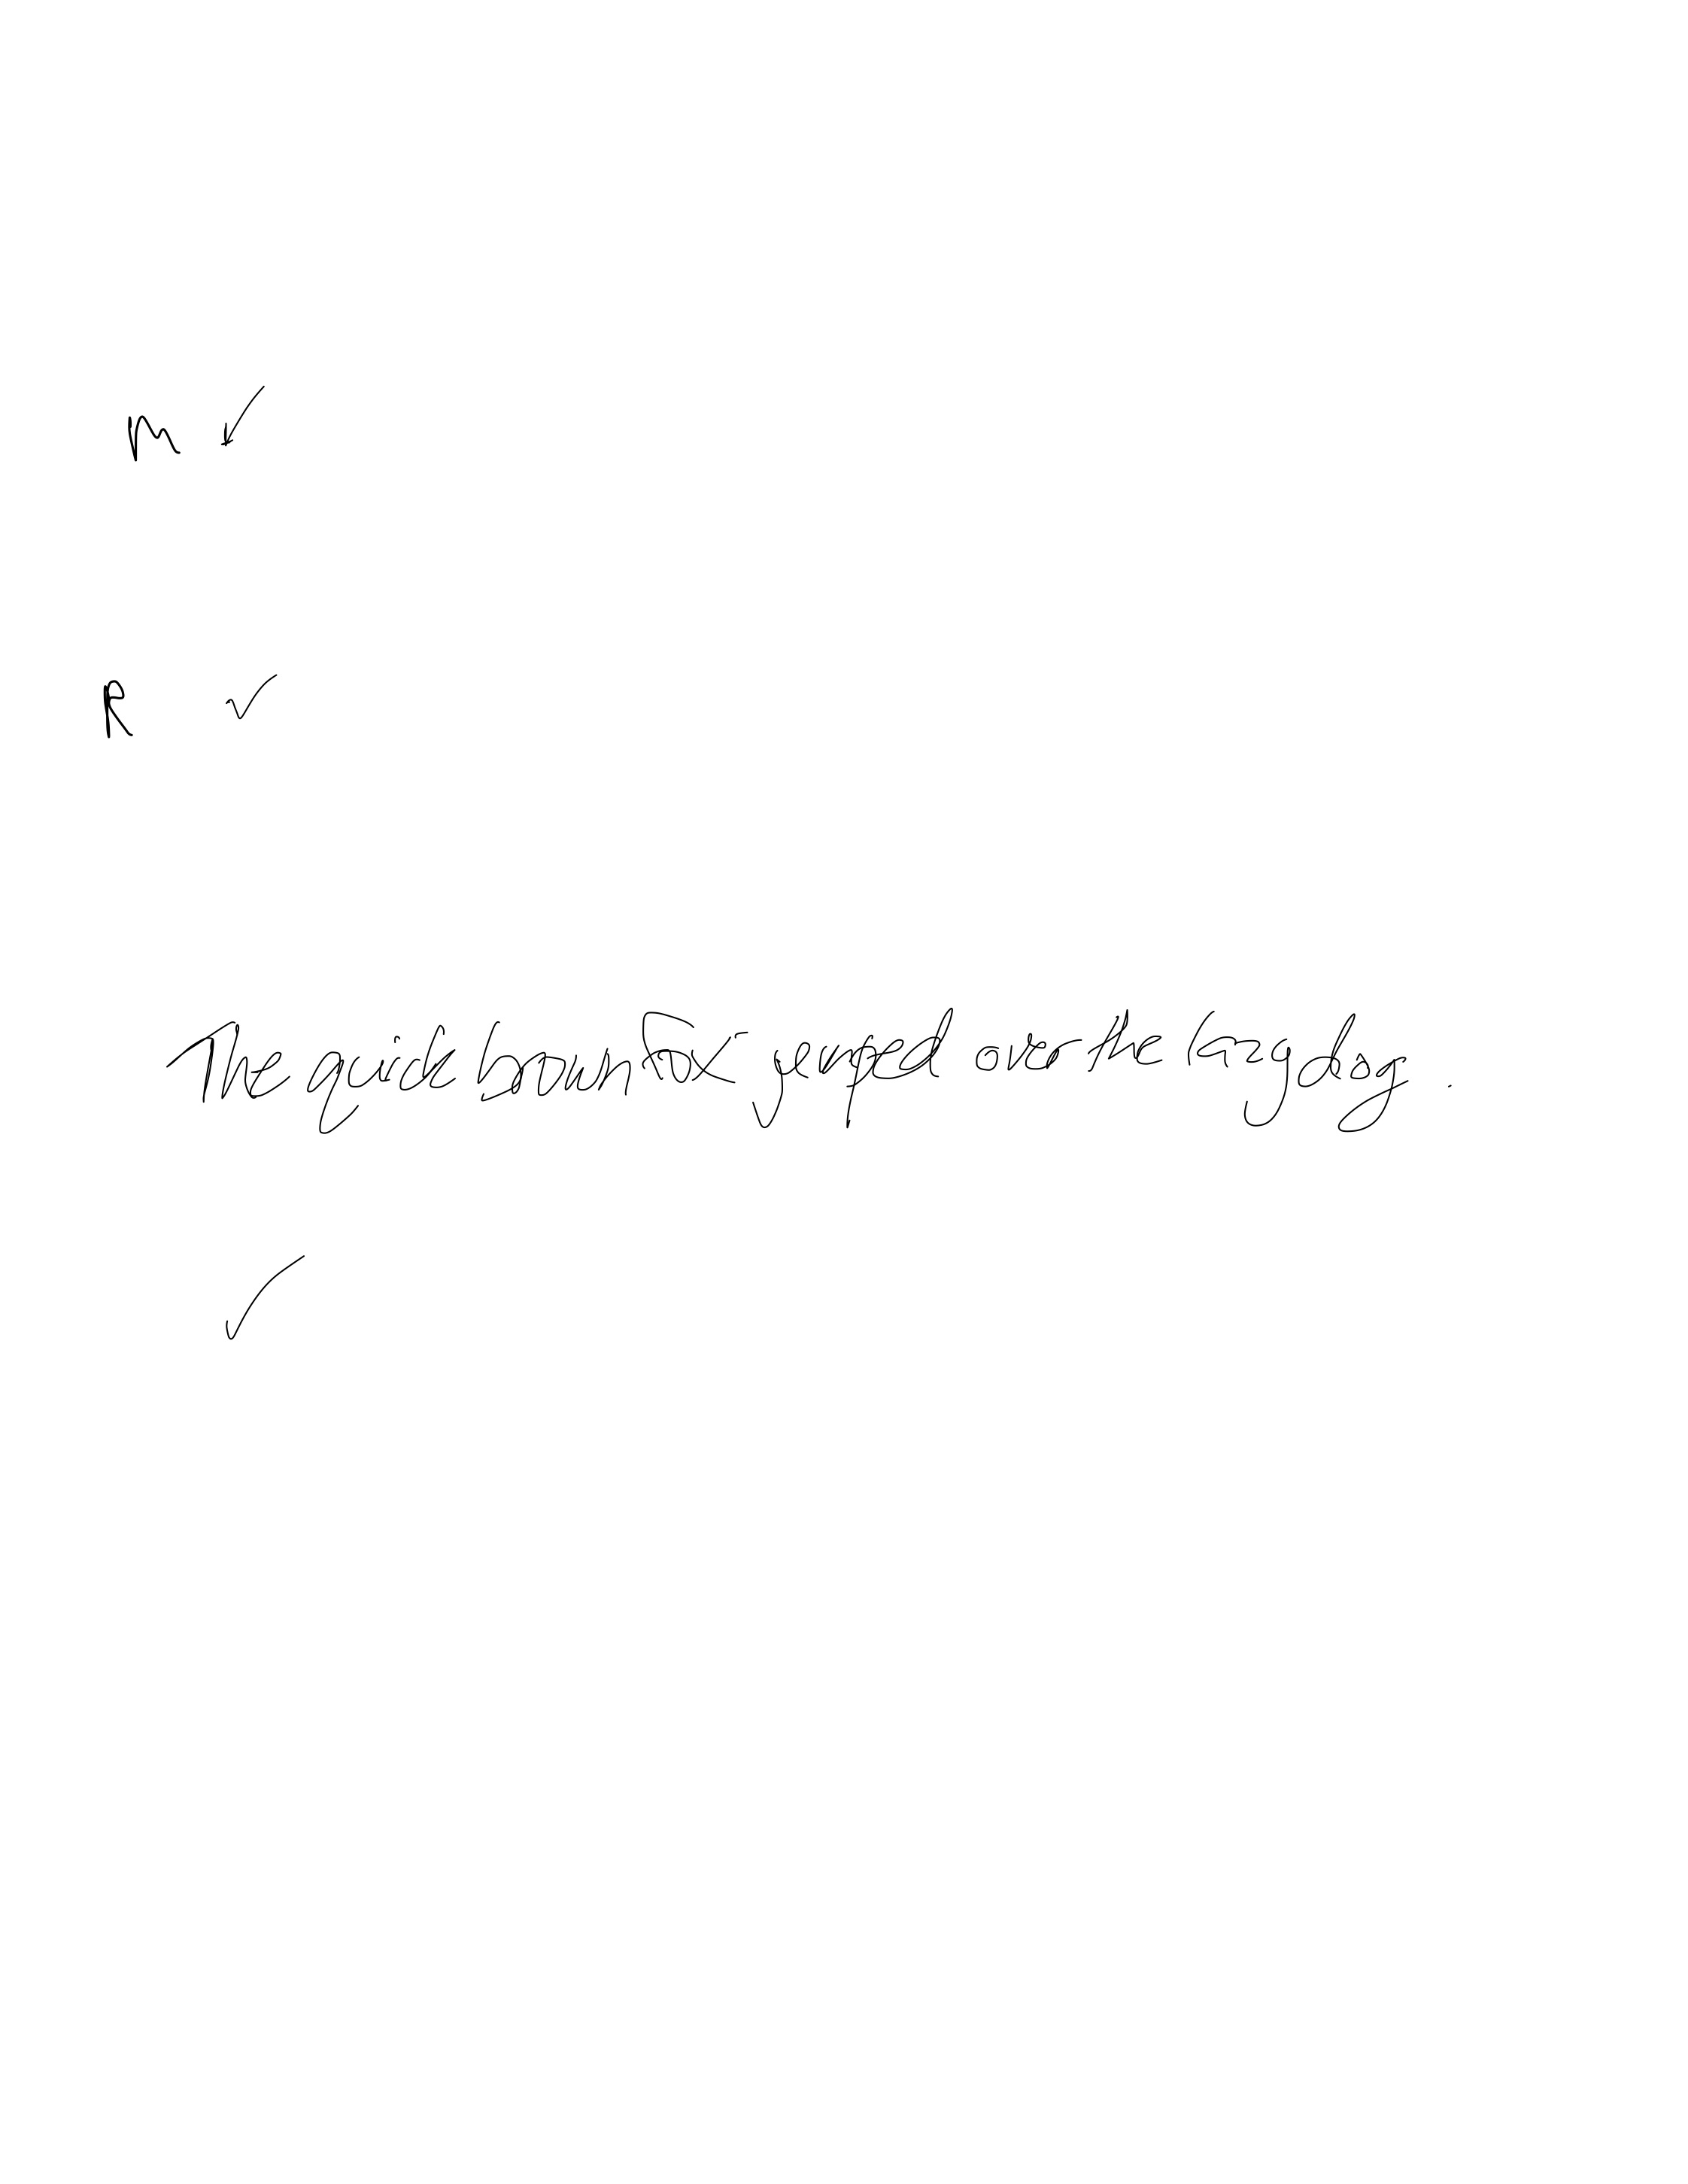 M ✓
R ✓
The quick brown Fox jumped over the lazy dog.
✓